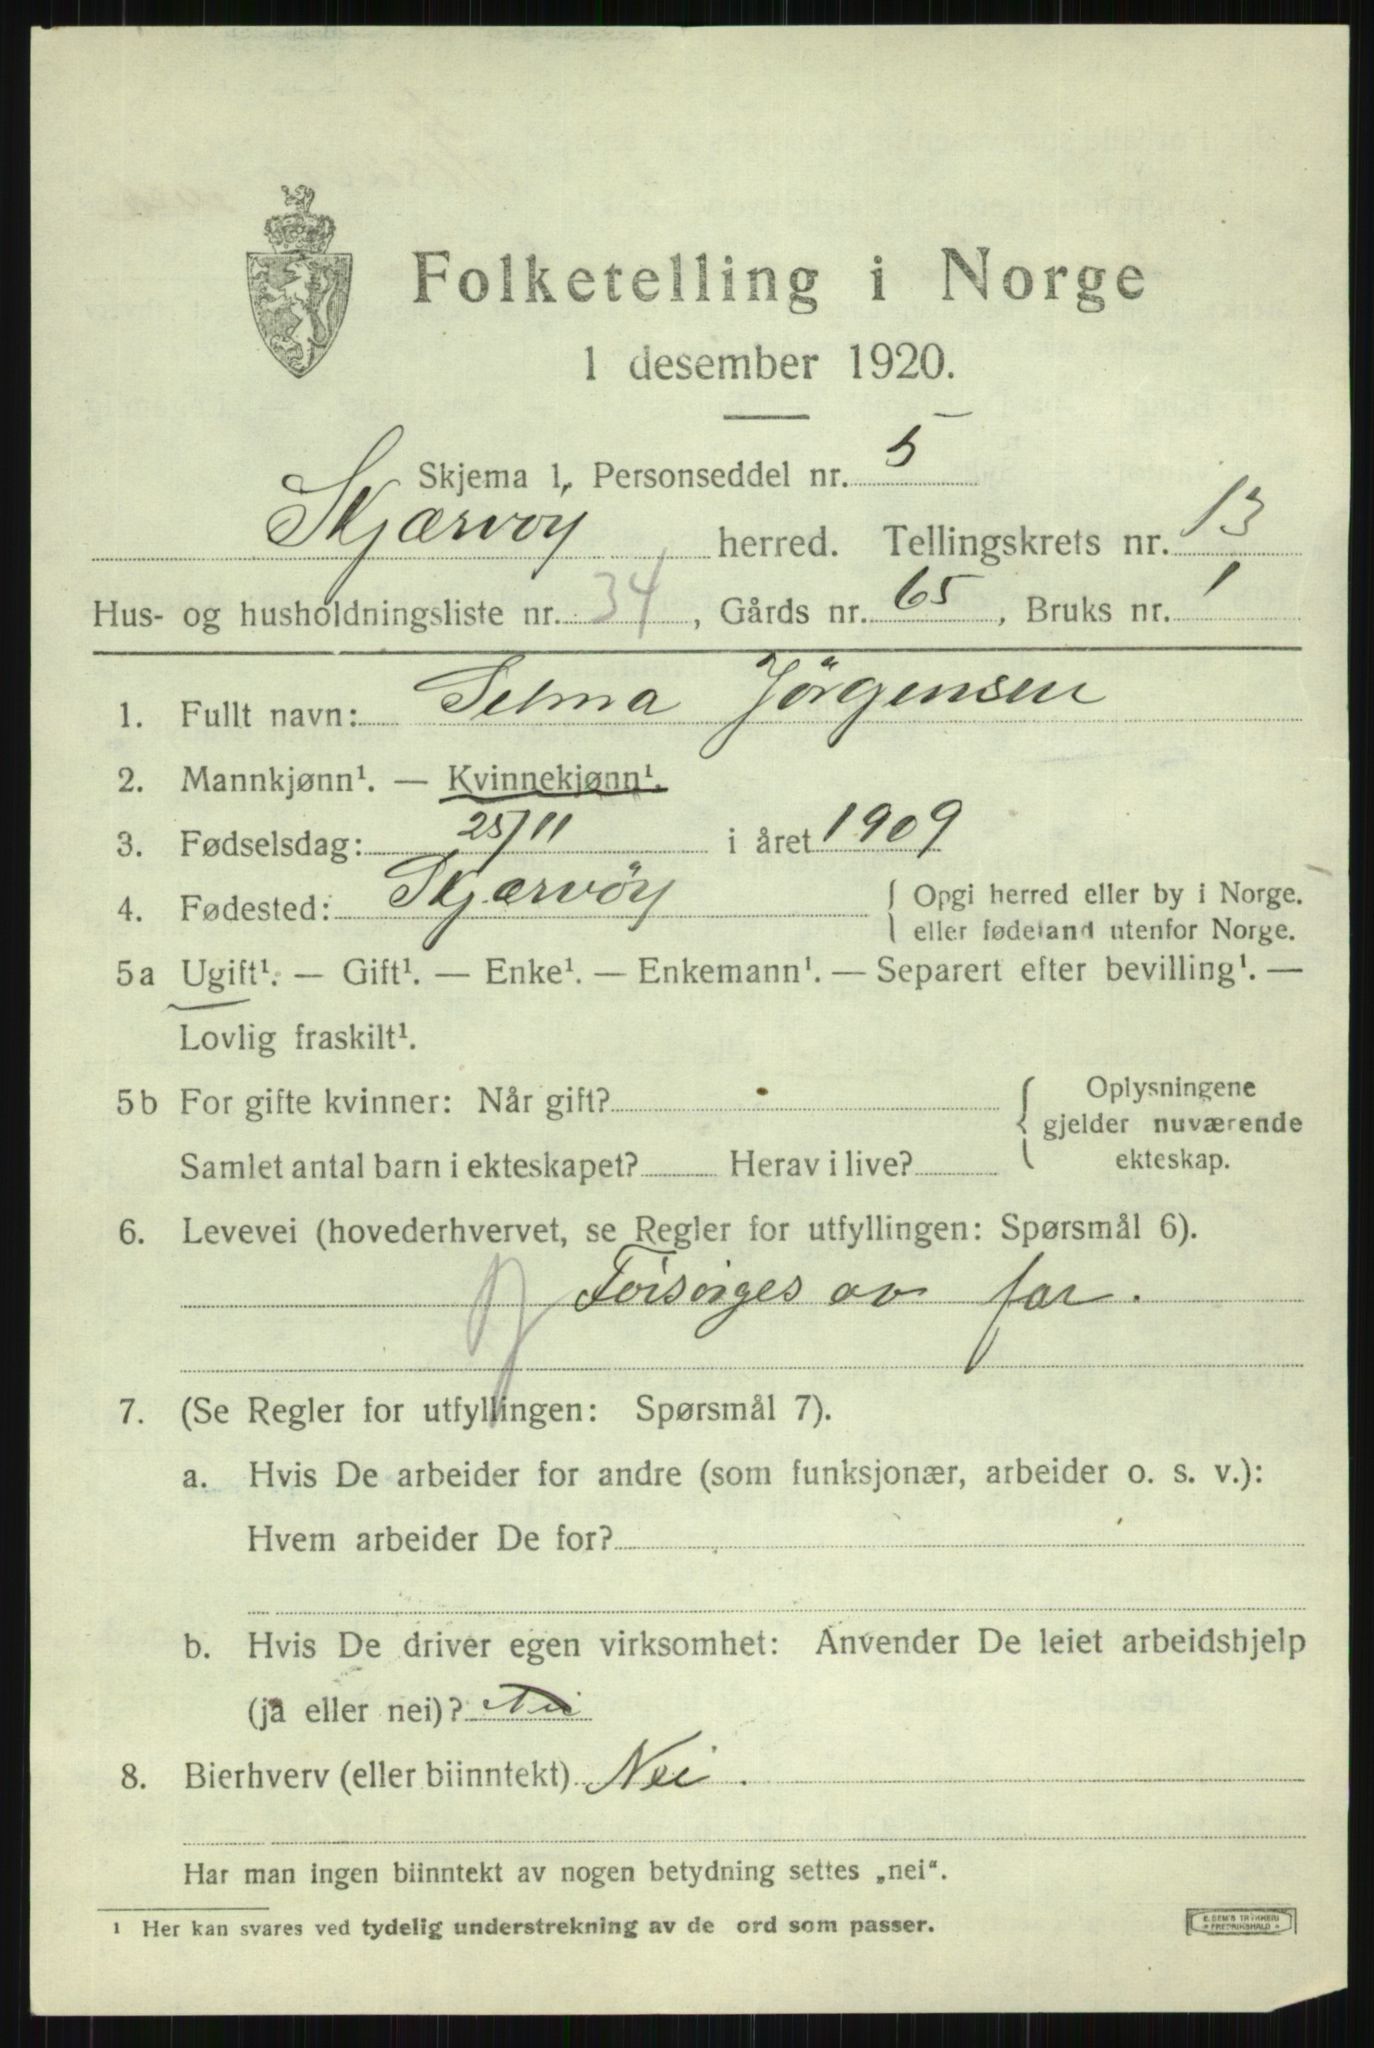 Folketelling i Norge
1 desember 1920.
Skjema 1, Personseddel nr. 5
Skjærvøy herred. Tellingskrets nr. 13
Hus- og husholdningsliste nr. 34, Gårds nr. 65, Bruks nr. 1
1. Fullt navn: Selma Jörgensen
2. Mannkjønn¹. — Kvinnekjønn¹.
3. Fødselsdag: 25/11 i året 1909
4. Fødested: Skjærvöy { Opgi herred eller by i Norge.
eller fødeland utenfor Norge.
5a Ugift¹. — Gift¹. — Enke¹. — Enkemann¹. — Separert efter bevilling¹. —
Lovlig fraskilt¹.
5b For gifte kvinner: Når gift? { Oplysningene
gjelder nuværende
Samlet antal barn i ekteskapet? Herav i live? ekteskap.
6. Levevei (hovederhvervet, se Regler for utfyllingen: Spørsmål 6).
Forsörges av far.
7. (Se Regler for utfyllingen: Spørsmål 7).
a. Hvis De arbeider for andre (som funksjonær, arbeider o. s. v.):
Hvem arbeider De for?
b. Hvis De driver egen virksomhet: Anvender De leiet arbeidshjelp
(ja eller nei)? Nei
8. Bierhverv (eller biinntekt) Nei.
Har man ingen biinntekt av nogen betydning settes „nei“.
¹ Her kan svares ved tydelig understrekning av de ord som passer.
E. SEM'S TRYKKERI
* FREDRIKSHALD *